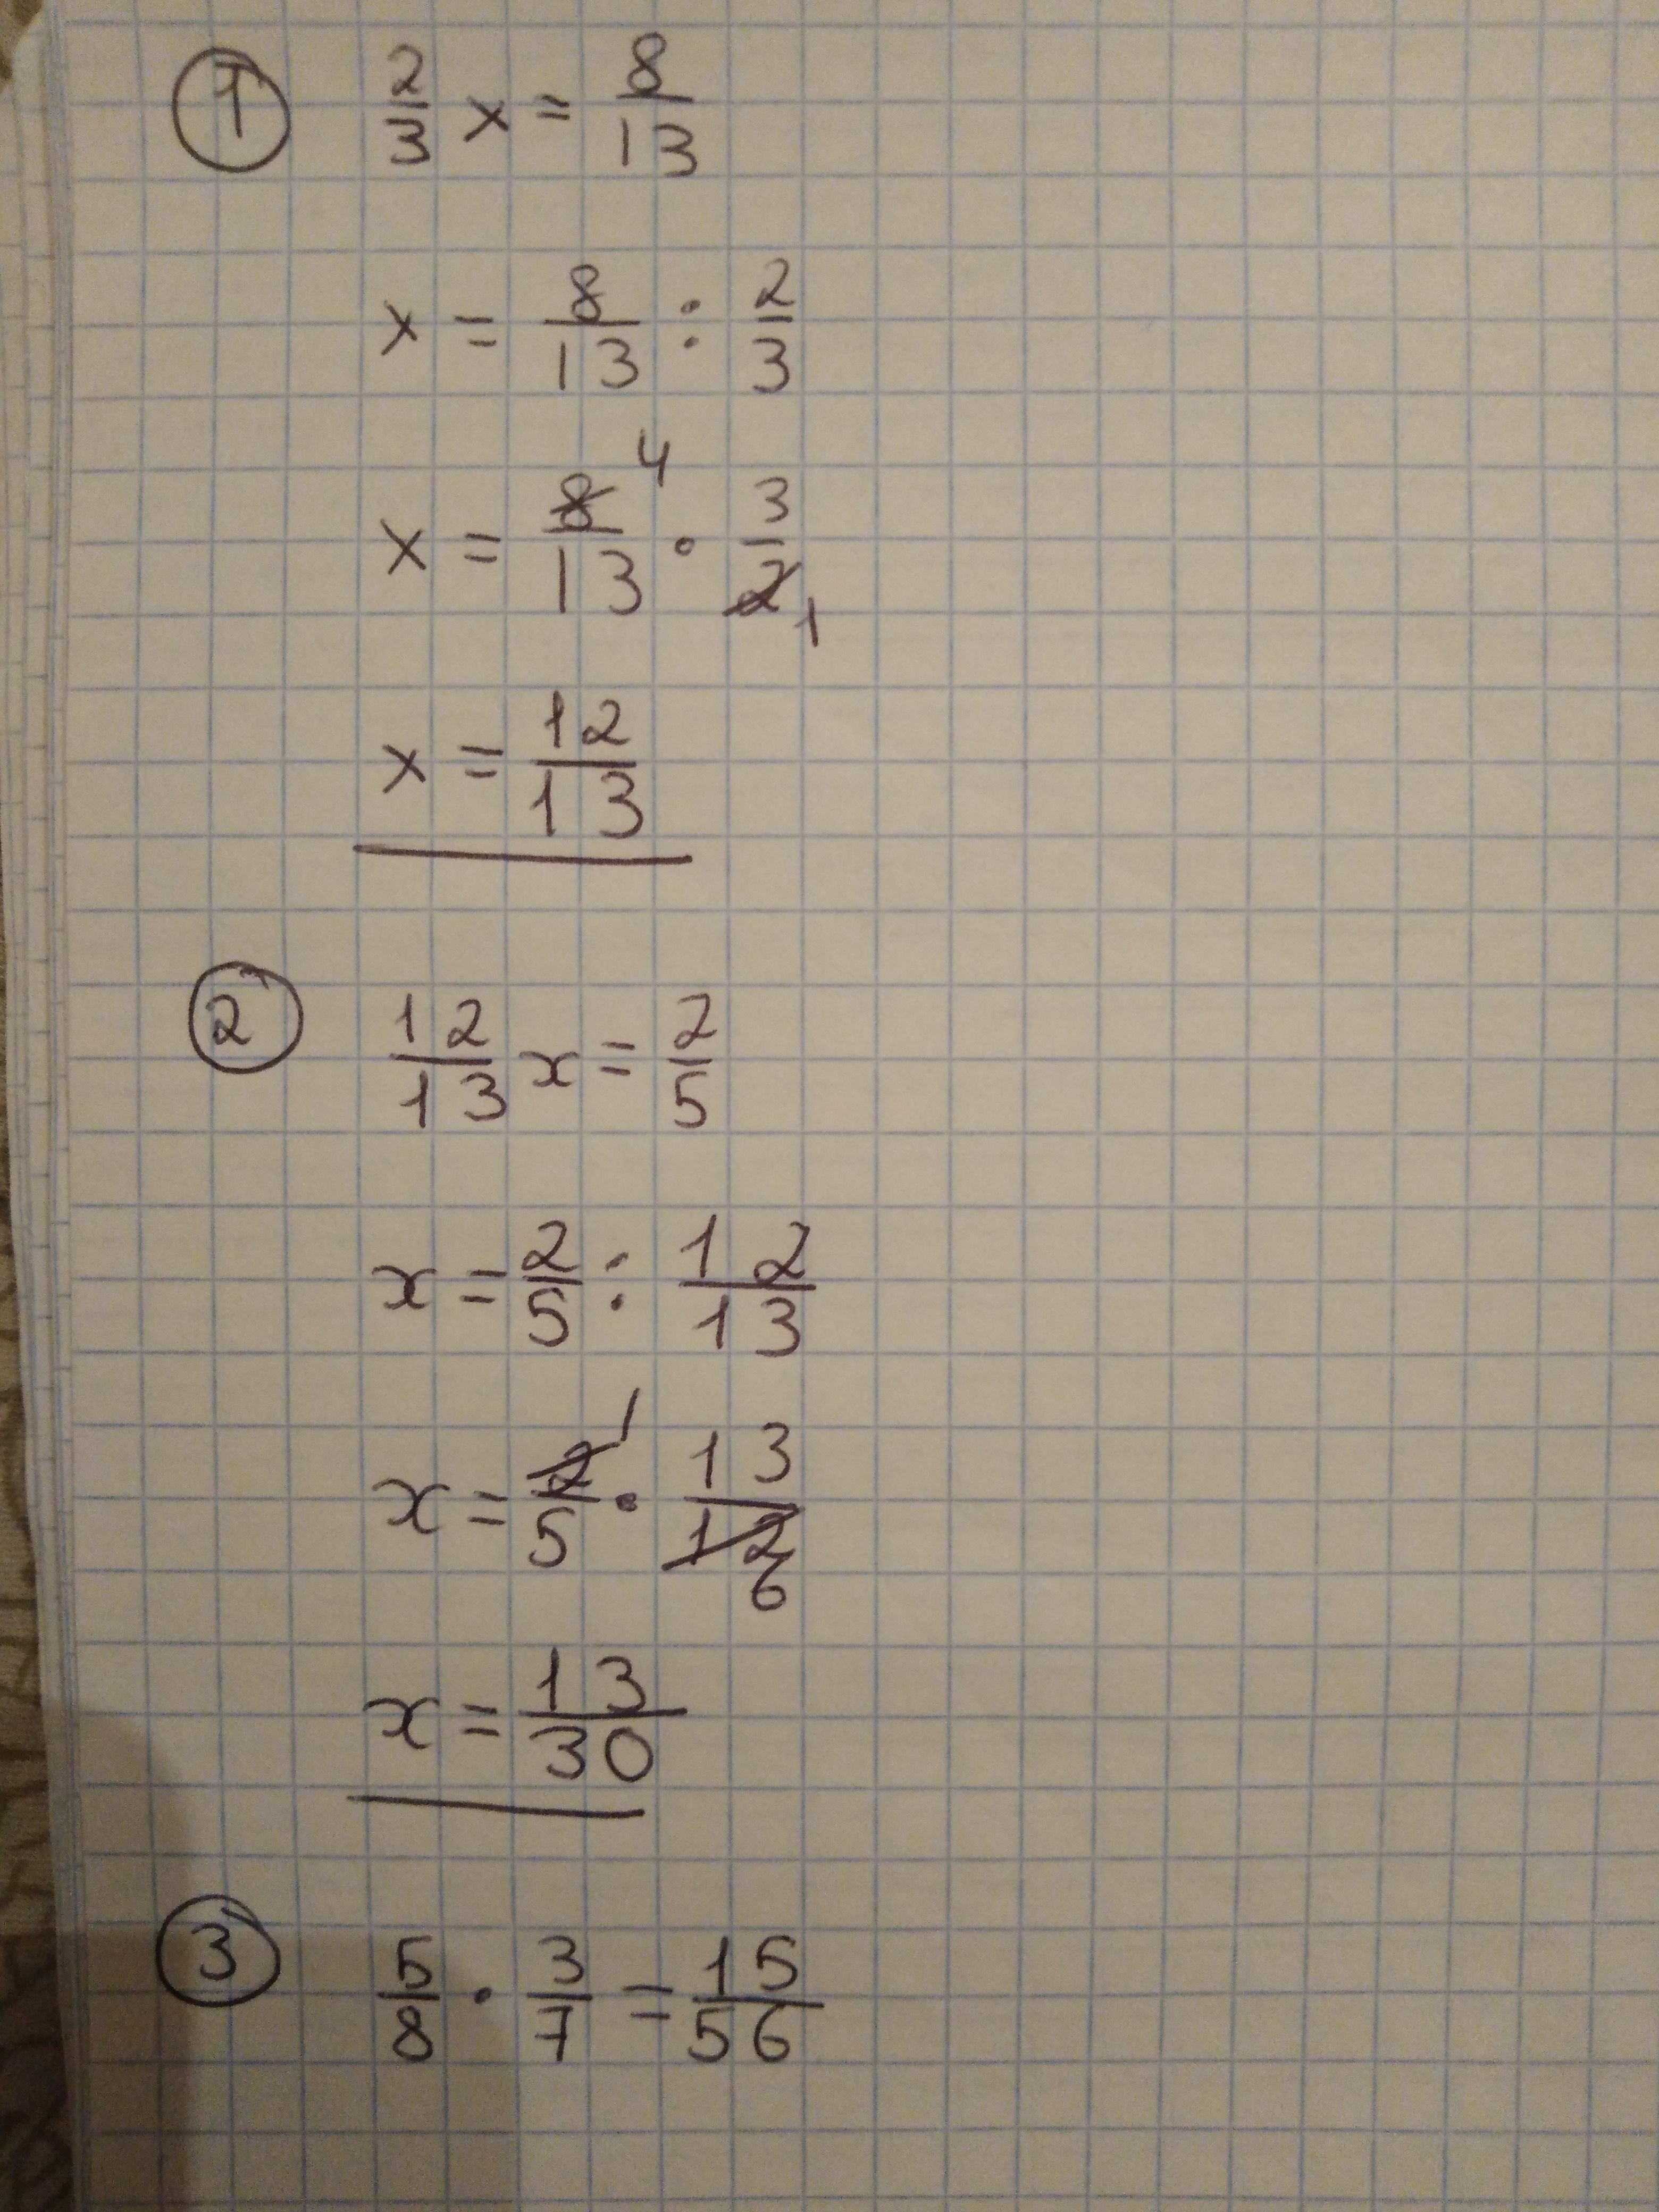 ① 2/3 x = 8/13
x = 8/13 : 2/3
x = 8̶ 4/13 · 3/2̶ 1
x = 12/13
② 12/13 x = 2/5
x = 2/5 : 12/13
x = 2̶ 1/5 · 13/1̶2̶ 6
x = 13/30
③ 5/8 · 3/7 = 15/56